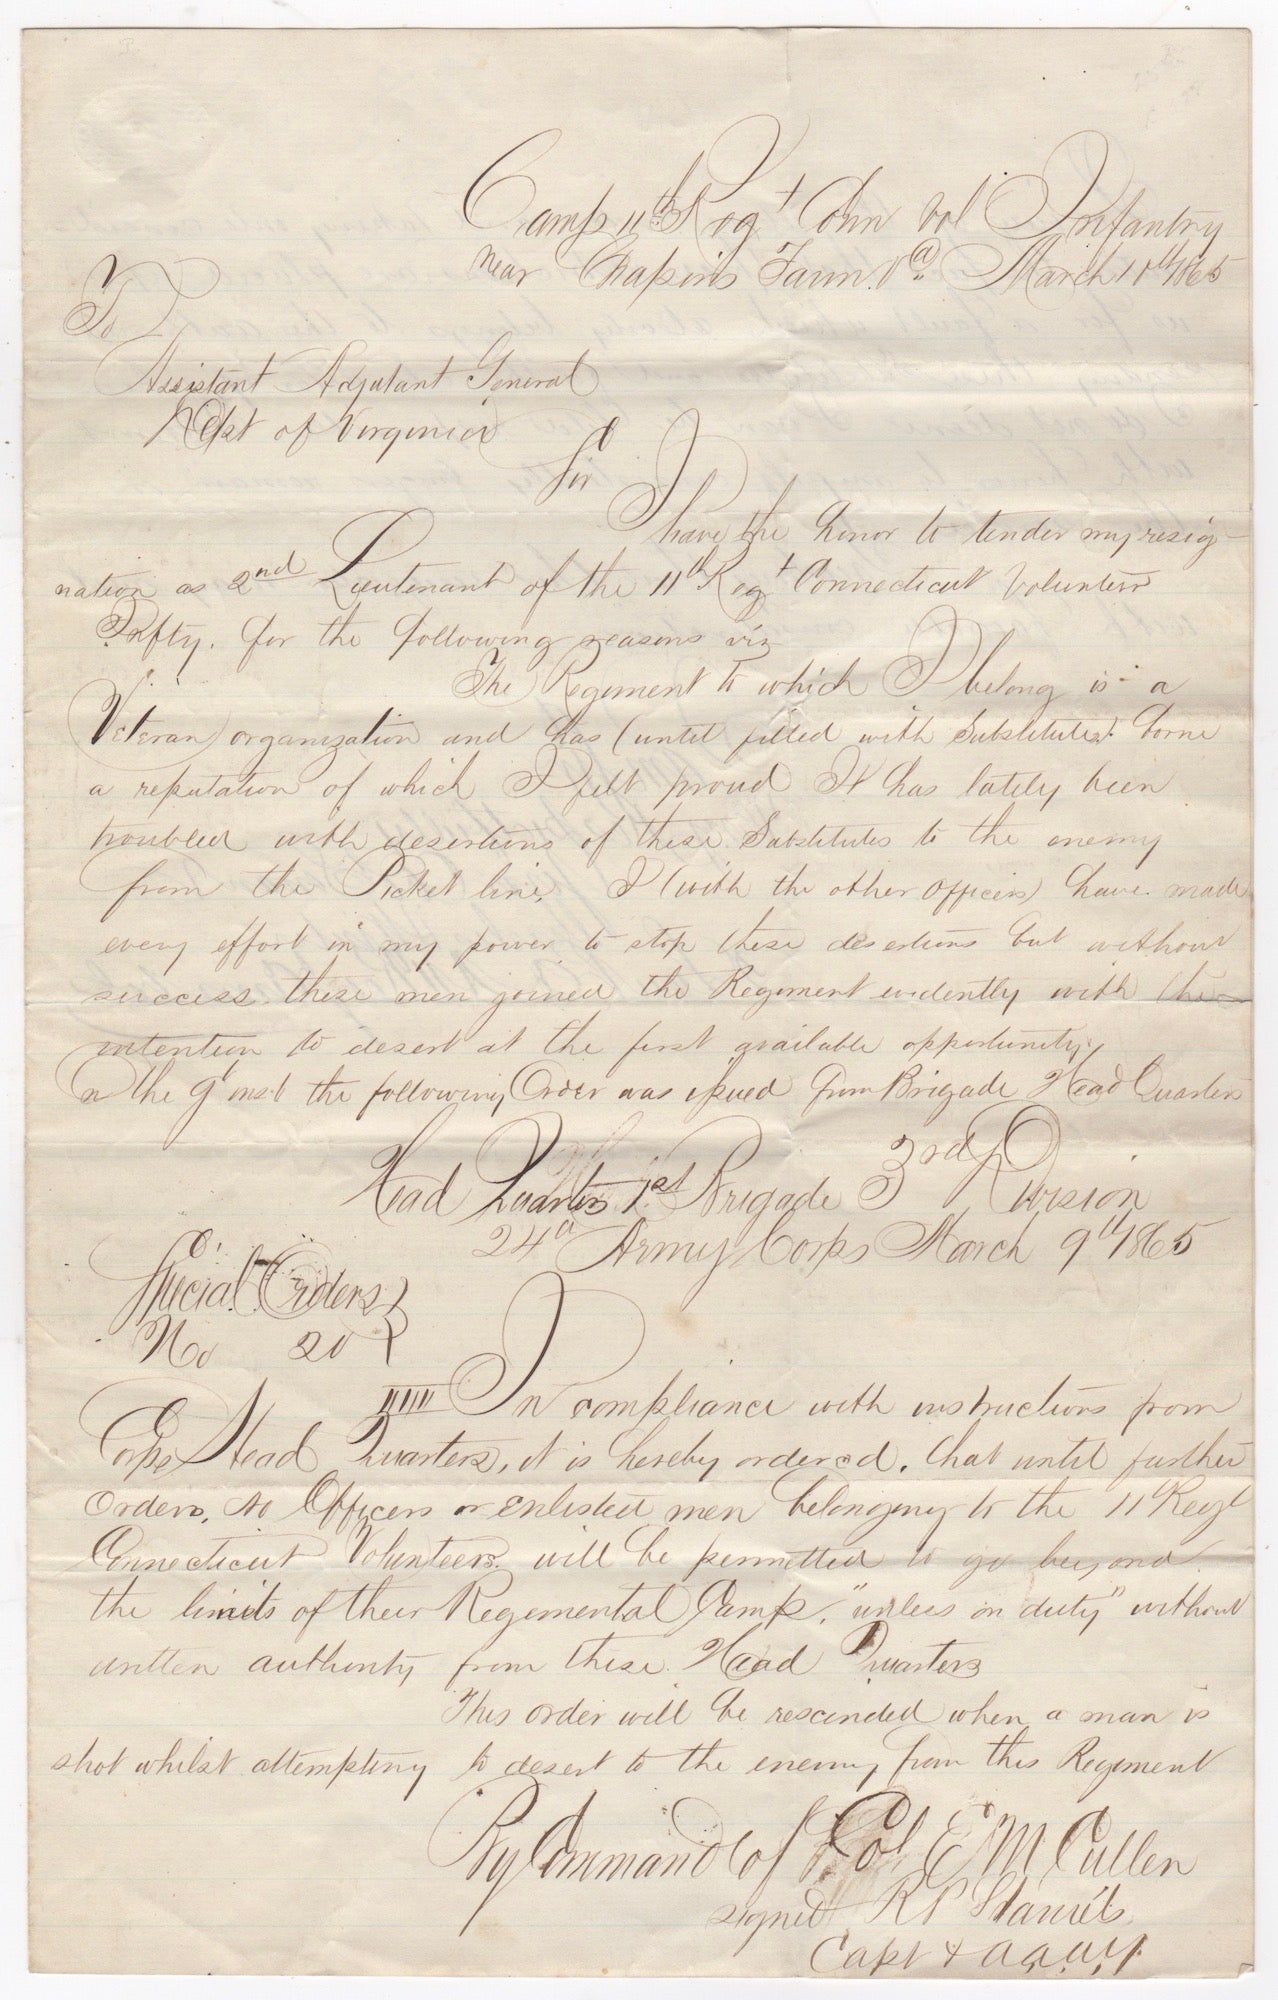 Camp 11th Regt Conn Vol Infantry
near Chapins Farm Va March 10th 1865
To
Assistant Adjutant General
Dept of Virginia
Sir
I have the honor to tender my resig-
nation as 2nd Lieutenant of the 11th Regt Connecticut Volunteer
Infty. for the following reasons viz
The Regiment to which I belong is a
Veteran organization and has (until filled with Substitutes) borne
a reputation of which I felt proud It has lately been
troubled with desertions of these Substitutes to the enemy
from the Picket line. I (with the other officers) have made
every effort in my power to stop these desertions but without
success. these men joined the Regiment evidently with the
intention to desert at the first available opportunity.
On the 9" inst the following Order was issued from Brigade Head Quarters
Head Quarters 1st Brigade 3rd Division
24th Army Corps March 9th 1865
Special Orders }
No 20 }
IIII In compliance with instructions from
Corps Head Quarters, it is hereby ordered, that until further
Orders, No Officers or enlisted men belonging to the 11 Regt
Connecticut Volunteers. will be permitted to go beyond
the limits of their Regimental Camp, "unless on duty" without
written authority from these Head Quarters
This order will be rescinded when a man is
shot whilst attempting to desert to the enemy from this Regiment
By Command of Col E M Cullen
signed R P
Capt & A.A.A.G.